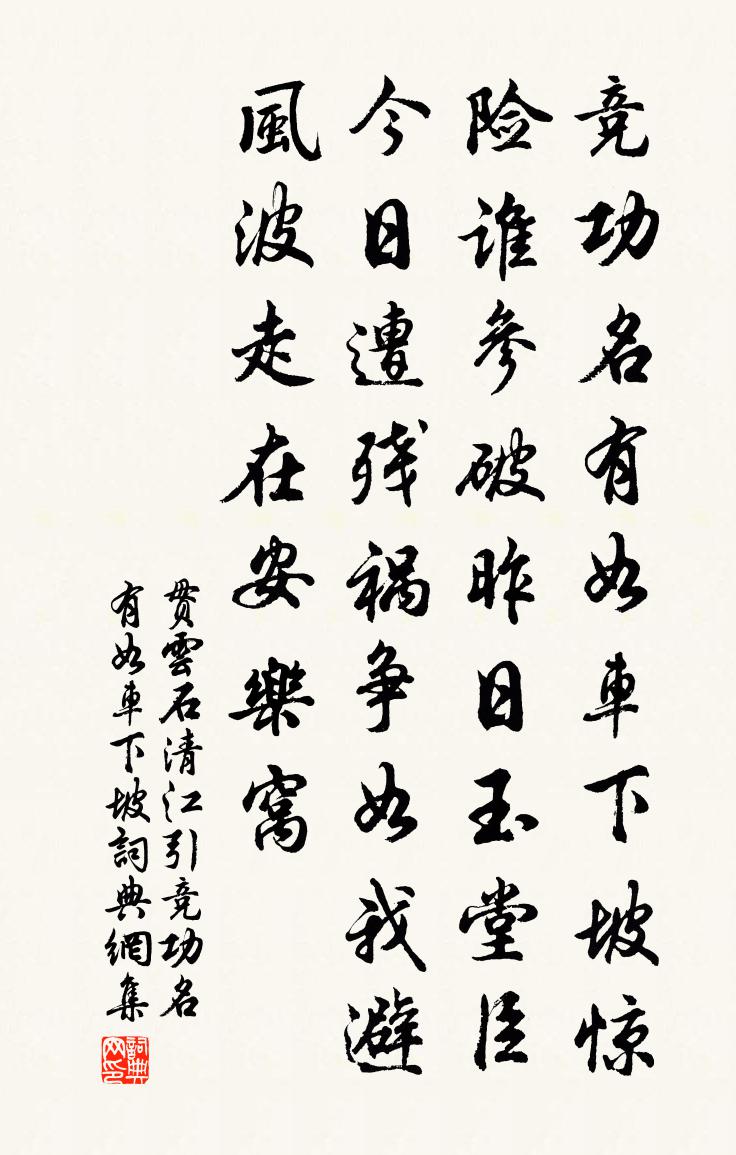 竞功名有如車下坡惊
险谁參破昨日玉堂臣
今日遭残祸争如我避
風波走在安樂窝
贯雲石清江引竞功名
有如車下坡詞典網集
詞典网印